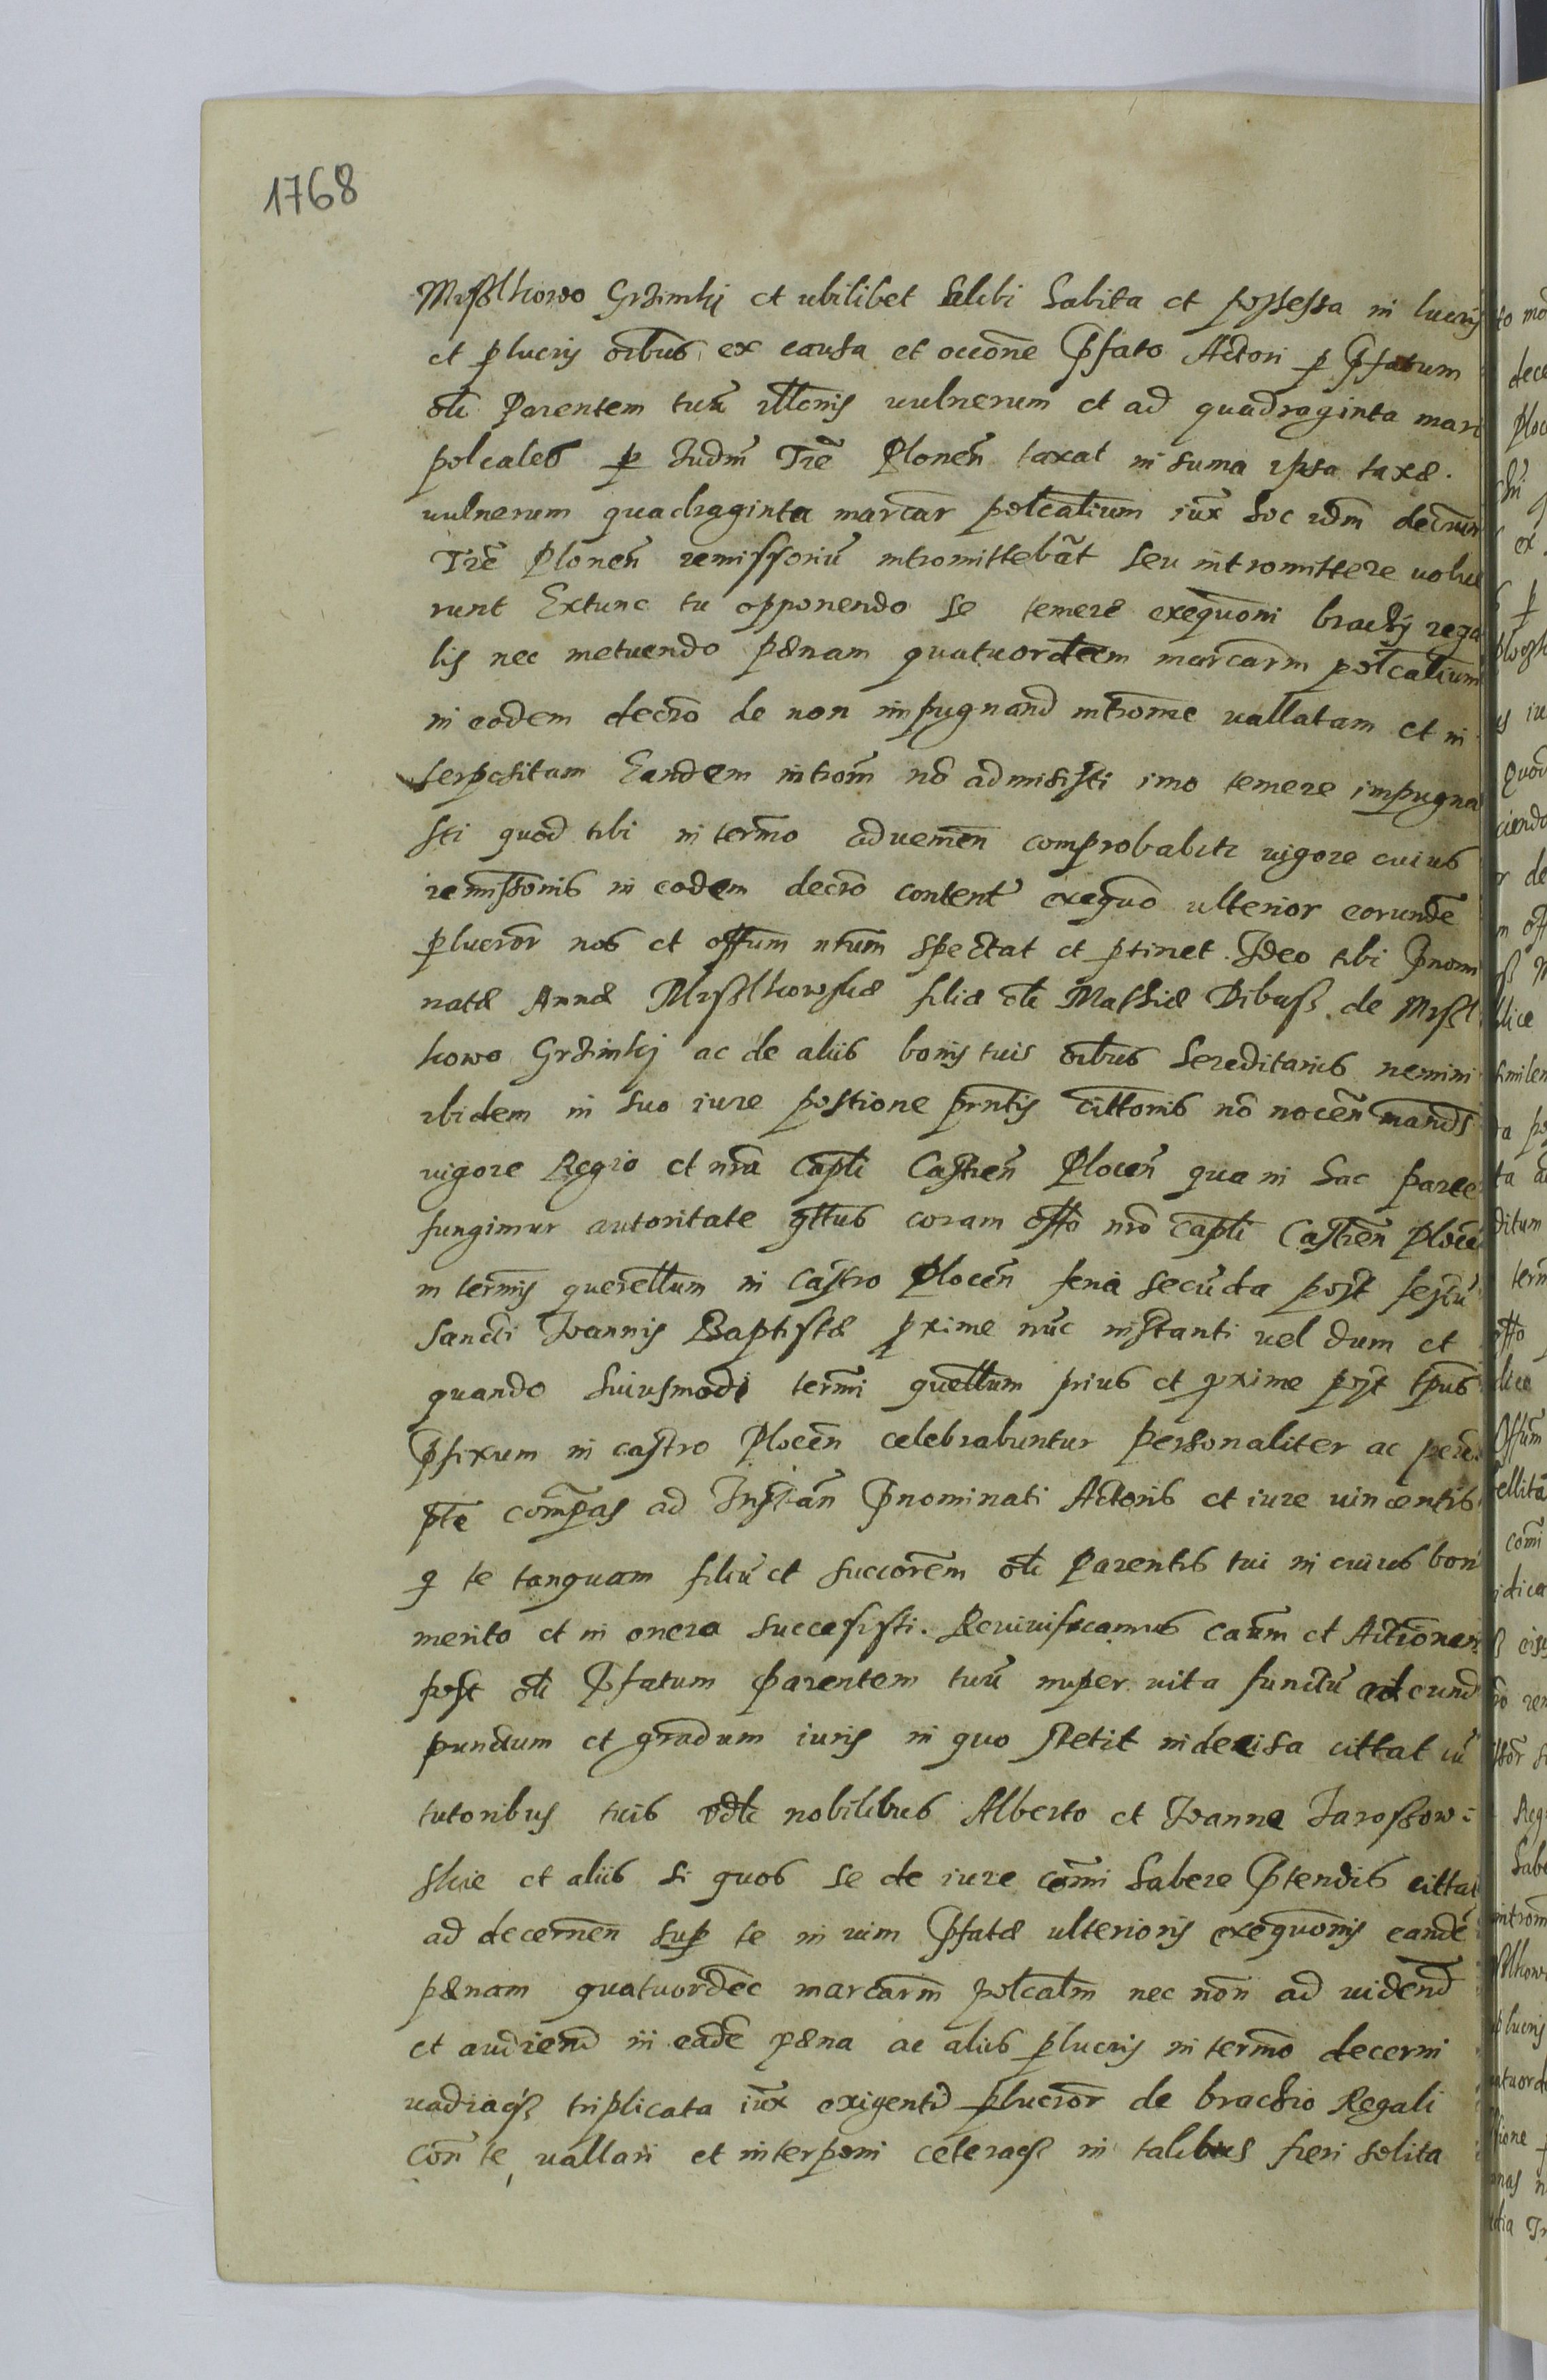 1768
Mysslkowo Grzimki et ubilibet alibi habita et possessa in lucris
et plucris oibus ex causa et occone Pfato Actori p Pfatum
oli Parentem tuu illonis vulnerum et ad quadraginta marc
polcales p Judm Tre Plonen taxat in suma ipsa taxæ.
vulnerum quadraginta marcar polcalium iux hoc idm decrum
Tre Plonen remissoriu intromittebat seu intromittere volue
runt Extunc tu opponendo se temere exequoni brachij rega
lis nec metuendo pænam quatuordecem marcarm polcalium
in eodem decro de non impugnand introme vallatam et in
terpositam Eandem introm no admisisti imo temere impugna
sti quod tibi in termo advenien comprobabitr vigore cuius
remissonis in eodem decro content exequo ulterior eorunde
plucror nos et offum nrum spectat et ptinet. Ideo tibi Pnomi
natæ Annæ Mysslkowskæ filiæ oli Mathiæ Dibuss de Myssl
kowo Grzimkj ac de aliis bonis tuis oibus hereditariis nemini
ibidem in suo iure postione pntis cittonis no nocen mands
vigore Regio et nra Capli Castren Plocen qua in hac parte
fungimur autoritate gttus coram offo nro capli Castren Plocen
in termis querellum in Castro Plocen feria secuda post festu
Sancti Joannis Baptistæ pxime nuc instanti vel dum et
quando huiusmodi termi quellum prius et pxime post tpus
Pfixum in castro Plocen celebrabuntur personaliter ac perē
pte compas ad Instan Pnominati Actoris et iure vincentis
q te tanquam filiu et succorem oli Parentis tui in cuius bon
merito et in onera successisti. Revivificamus caum et Actionem
post oli Pfatum Parentem tuu nuper vita functu ad eund
punctum et gradum iuris in quo stetit indecisa cittat cu
tutoribus tuis vdli nobilibus Alberto et Joanne Jarossow
skie et aliis si quos se de iure comi habere Ptendis cittat
ad decernen sup te in vim Pfatæ ulterioris exequonis eande
pænam quatuordec marcarm polcalm nec non ad vidend
et audiend in eade pæna ac aliis plucris in termo decerni
vadiaqz triplicata iux exigentiā plucror de brachio Regali
con te vallari et interponi ceteraqz in talibus fieri solita